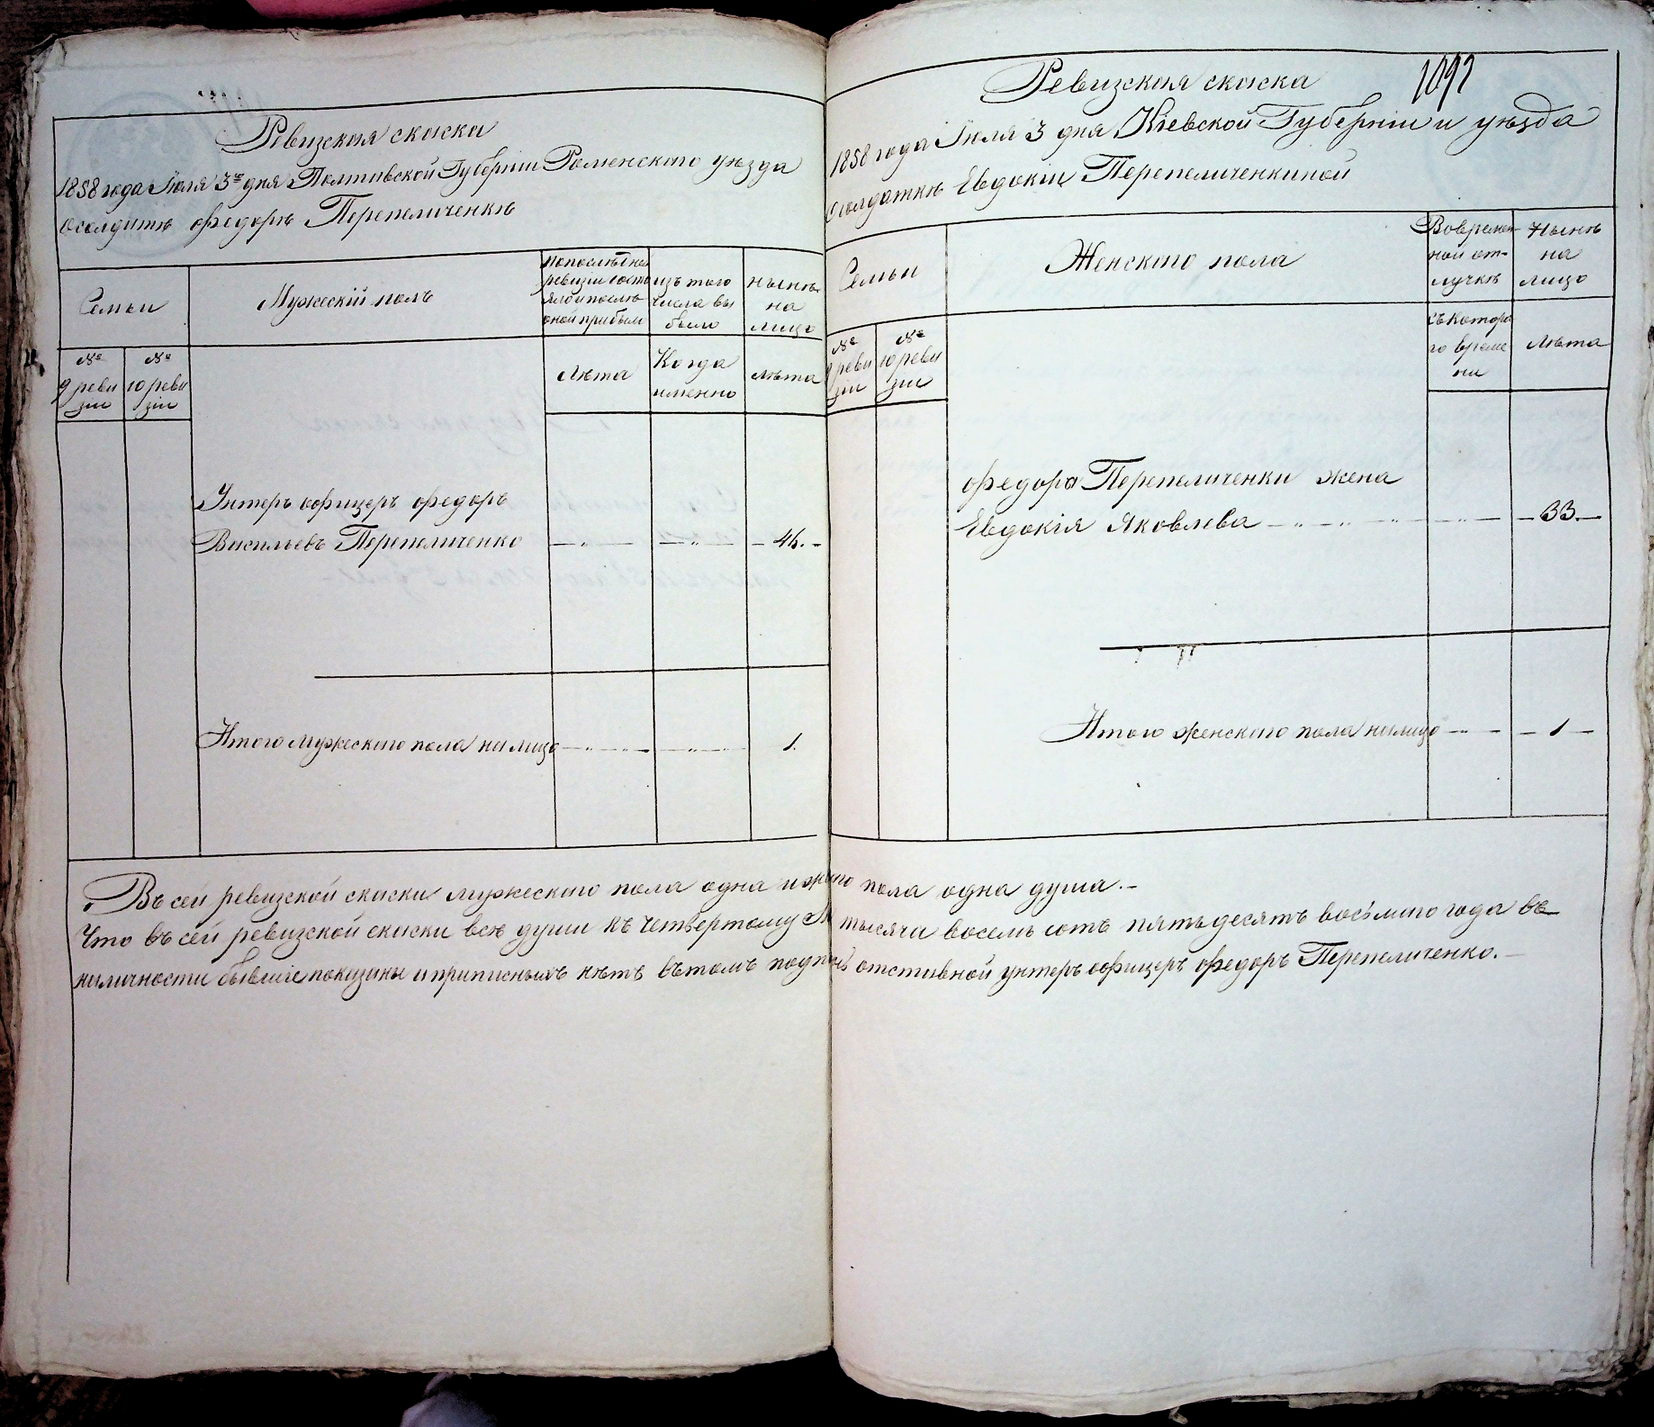 Ревизская скаска
1858 года Іюля 3го дня Полтавской Губерніи Роменского уезда
о солдатѣ Федорѣ Перепеличенкѣ
Семьи
Мужескій полъ
По последней
ревизіи состо
яло и после
оной прибыло
изъ того
числа вы
было
Нынѣ
на
лицо
№
9 реви
зіи
№
10 реви
зіи
Лѣта
Когда
именно
Лѣта
Унтеръ офицеръ Федоръ
Васильевъ Перепеличенко
46.
Итого мужеского пола налицо
1.
Ревизская скаска
1092
1858 года Іюля 3 дня Кіевской Губерніи и уѣзда
о солдаткѣ Евдокіи Перепеличенкиной
Семьи
Женского пола
Во времен
ной от-
лучкѣ
Нынѣ
на
лицо
№
9 реви
зіи
№
10 реви
зіи
съ котора
го време
ни
Лѣта
Федора Перепеличенки жена
Евдокія Яковлева
33.
Итого женского пола налицо
1
Въ сей ревизской скаски мужеского пола одна и жен̃го пола одна душа.-
Что въ сей ревизской скаски все души къ четвертому тысяча восемь сотъ пятьдесятъ восьмого года въ
наличности бывшіе показаны и приписныхъ нѣтъ въ томъ отставной унтеръ офицеръ Федоръ Перепеличенко.